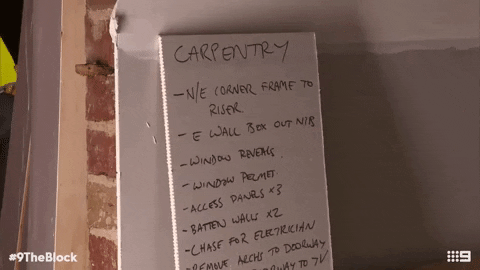 CARPENTRY
- N/E CORNER FRAME TO
RISER
- E WALL BOX OUT NIB
- WINDOW REVEALS.
- WINDOW PELMET
- ACCESS PANELS x3
- BATTEN WALLS x2
- CHASE FOR ELECTRICIAN
- REMOVE ARCHS TO DOORWAY
DOORWAY TO TV
#9TheBlock
9